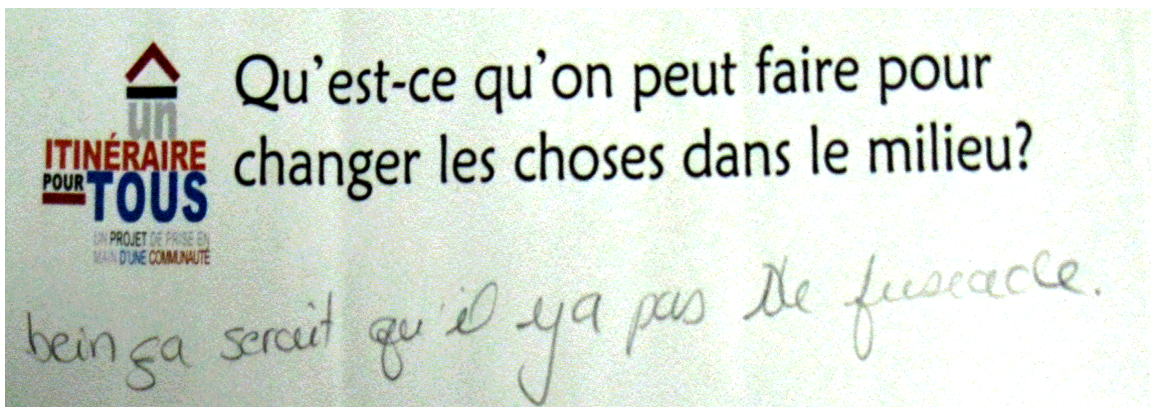 un
ITINÉRAIRE
POUR TOUS
UN PROJET DE PRISE EN
MAIN D'UNE COMMUNAUTÉ
Qu'est-ce qu'on peut faire pour
changer les choses dans le milieu?
bein ça serait qu'il y a pas de